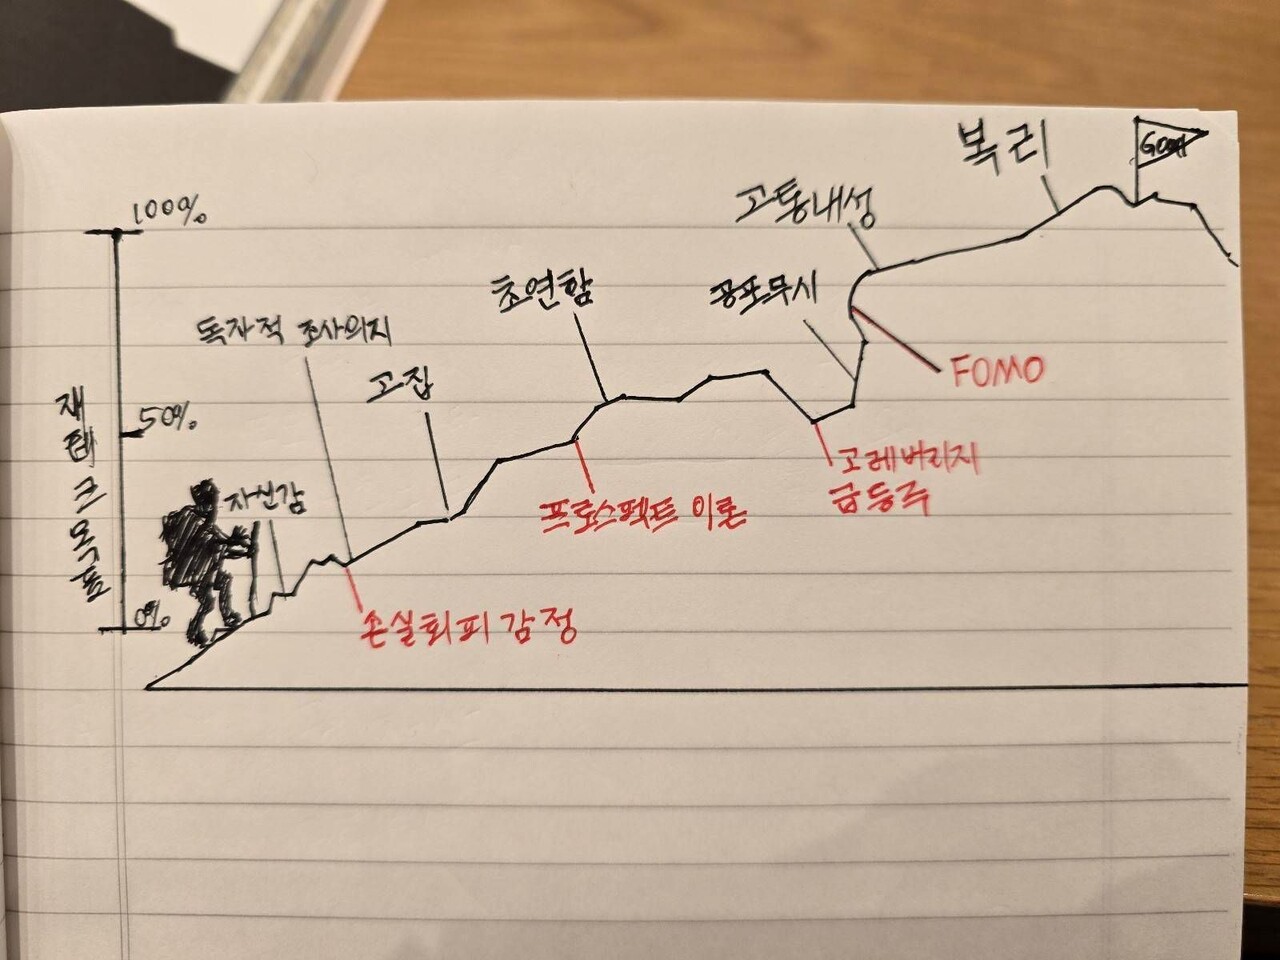 복리
GOAL
고통내성
100%
초연함
공포무시
독자적 조사의지
고집
FOMO
50%
재테크목표
고레버리지
급등주
자신감
프로스펙트 이론
0%
손실회피 감정